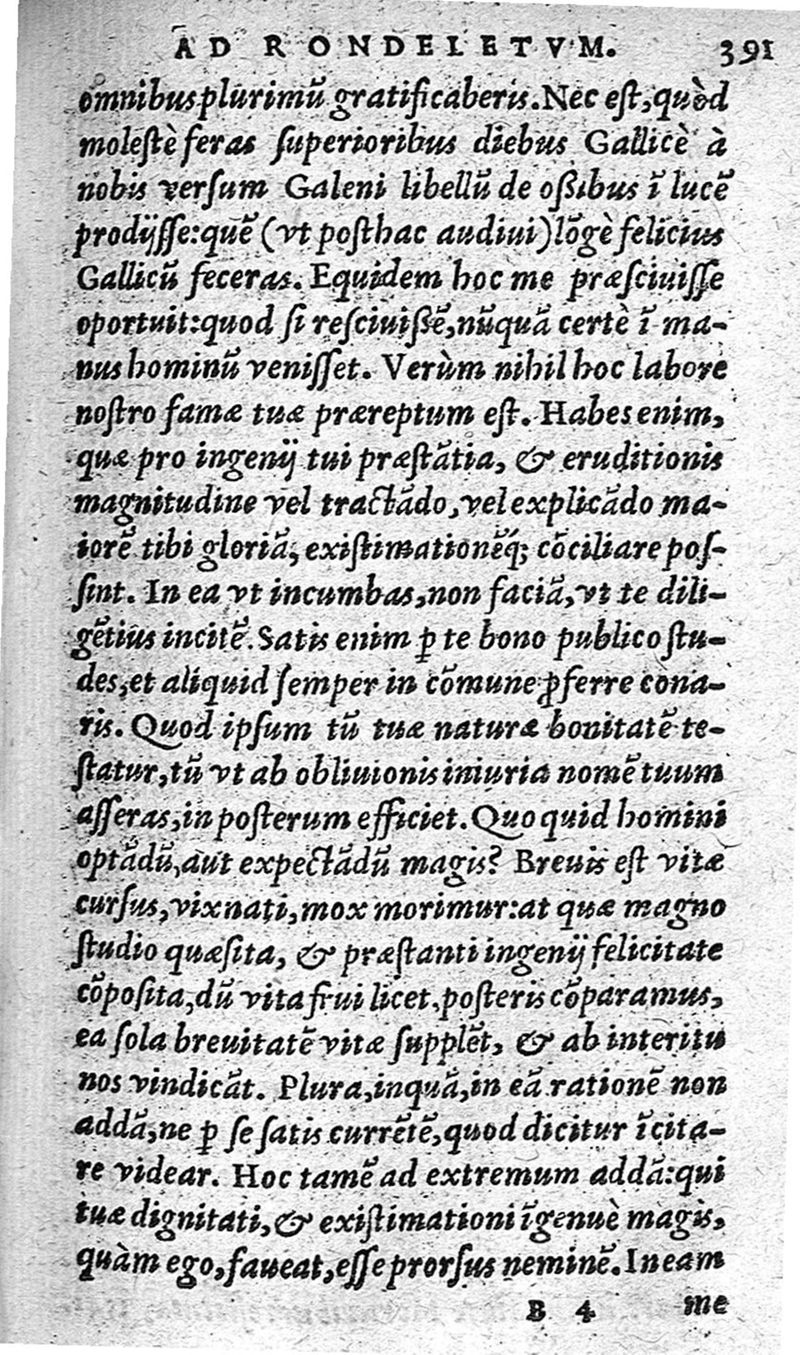 AD RONDELETVM. 391
omnibus plurimũ gratificaberis. Nec eſt, quòd
moleſtè feras ſuperioribus diebus Gallicè à
nobis verſum Galeni libellũ de oßibus ĩ lucẽ
prodijſſe: quẽ (vt poſthac audiui) lõgè felicius
Gallicũ feceras. Equidem hoc me præſciuiſſe
oportuit: quod ſi reſciuißẽ, nũquã certè ĩ ma-
nus hominũ veniſſet. Verùm nihil hoc labore
noſtro famæ tuæ præreptum eſt. Habes enim,
quæ pro ingenij tui præſtãtia, & eruditionis
magnitudine vel tractãdo, vel explicãdo ma-
iorẽ tibi gloriã, exiſtimationẽq́; cõciliare poſ-
ſint. In ea vt incumbas, non faciã, vt te dili-
gẽtius incitẽ. Satis enim ꝑ te bono publico ſtu-
des, et aliquid ſemper in cõmune ꝓferre cona-
ris. Quod ipſum tũ tuæ naturæ bonitatẽ te-
ſtatur, tũ vt ab obliuionis iniuria nomẽ tuum
aſſeras, in poſterum efficiet. Quo quid homini
optãdũ, aut expectãdũ magis? Breuis eſt vitæ
curſus, vix nati, mox morimur: at quæ magno
ſtudio quæſita, & præſtanti ingenij felicitate
cõpoſita, dũ vita frui licet, poſteris cõparamus,
ea ſola breuitatẽ vitæ ſupplẽt, & ab interitu
nos vindicãt. Plura, inquã, in eã rationẽ non
addã, ne ꝑ ſe ſatis currẽtẽ, quod dicitur ĩcita-
re videar. Hoc tamẽ ad extremum addã: qui
tuæ dignitati, & exiſtimationi ĩgenuè magis,
quàm ego, faueat, eſſe prorſus neminẽ. In eam
B 4 me